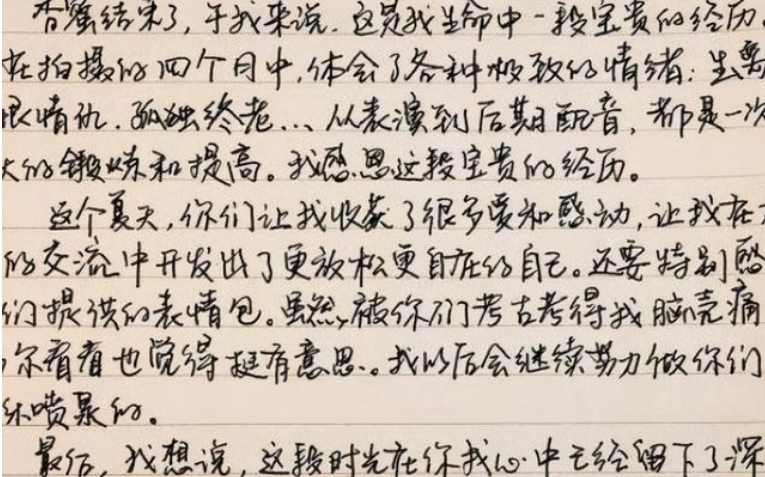 香蜜结束了,于我来说,这是我生命中一段宝贵的经历。
在拍摄的四个月中,体会了各种极致的情绪:生离
恨情仇.孤独终老...从表演到后期配音,都是一次
大的锻炼和提高。我感恩这段宝贵的经历。
这个夏天,你们让我收获了很多爱和感动,让我在
的交流中开发出了更放松更自在的自己。还要特别感
们提供的表情包。虽然,被你们考古考得我脑壳痛
尔看看也觉得挺有意思。我以后会继续努力做你们
喷泉的。
最后,我想说,这段时光在你我心中已经留下了深